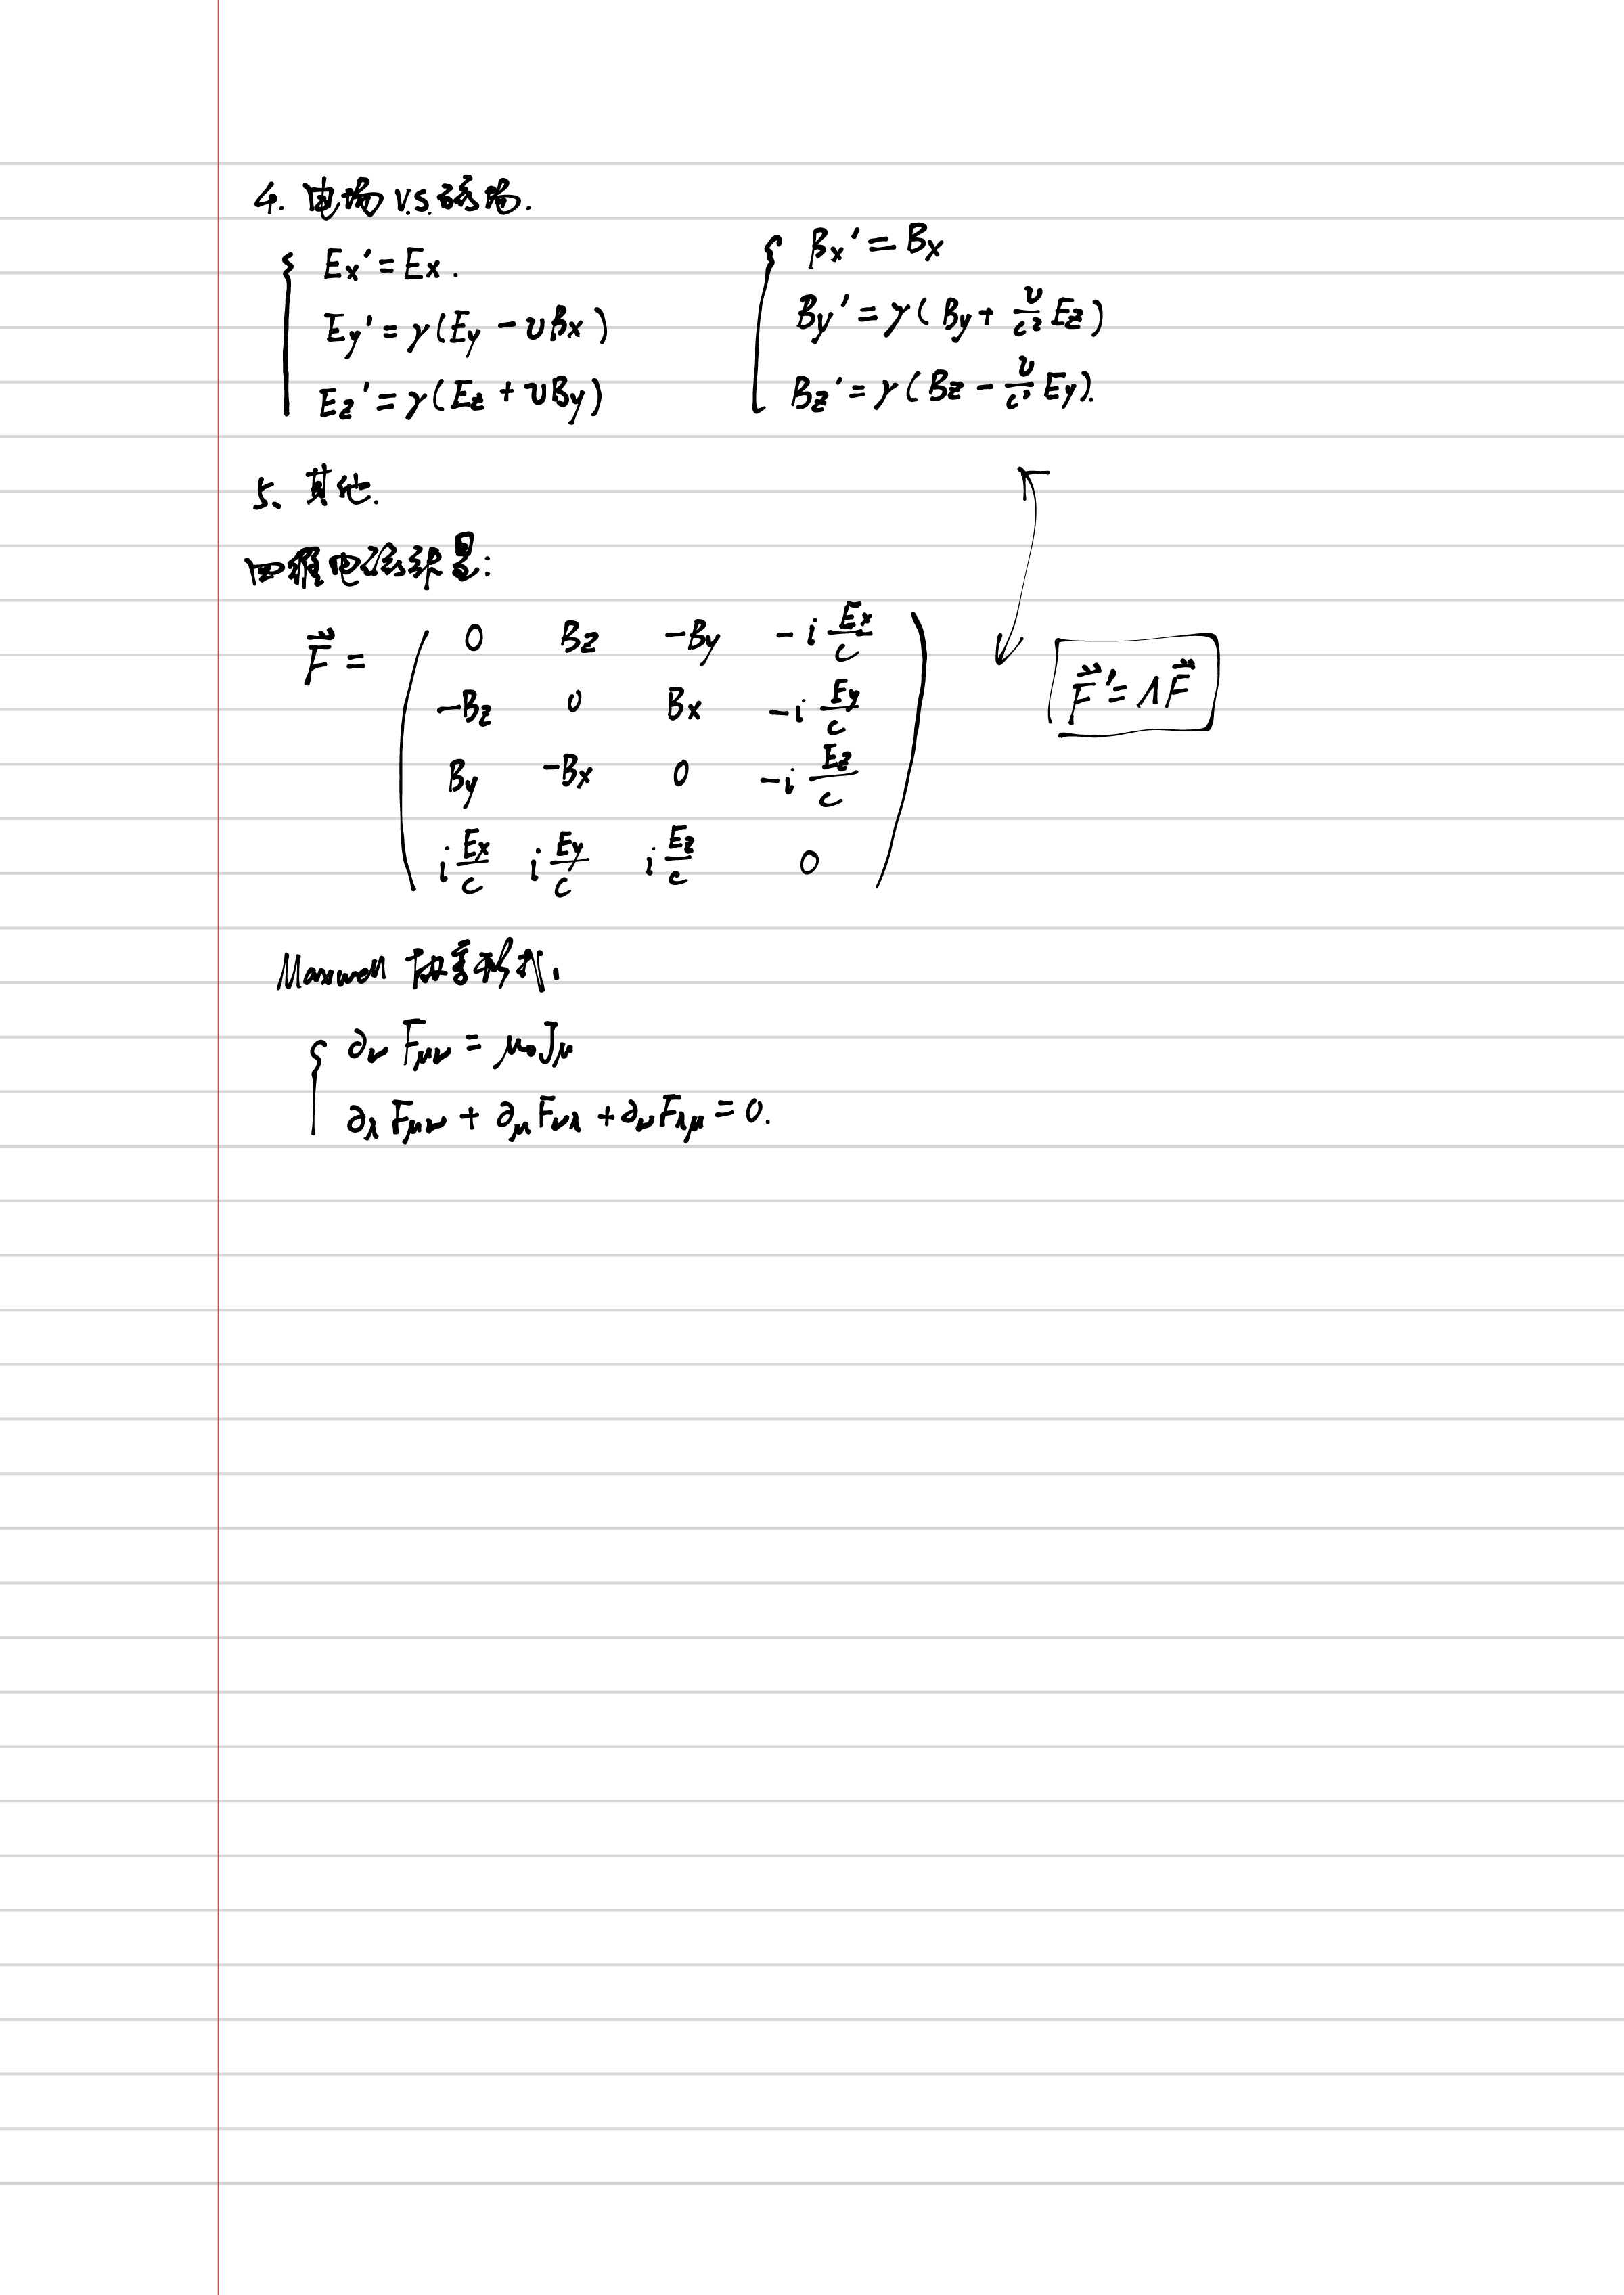 4. 电场 v.s. 磁场.
Ex' = Ex.
Ey' = γ(Ey - υBx)
Ez' = γ(Ez + υBy)
Bx' = Bx
By' = γ(By + υ/c² Ez)
Bz' = γ(Bz - υ/c² Ey).
5、其他.
四维电磁张量:
F⃗⃗ =
0 Bz -By -i Ex/c
-Bz 0 Bx -i Ey/c
By -Bx 0 -i Ez/c
i Ex/c i Ey/c i Ez/c 0
F⃗⃗' = ΛF⃗⃗
Maxwell 协变形式、
∂ν Fμν = μ0Jμ
∂λ Fμν + ∂μ Fνλ + ∂ν Fλμ = 0.